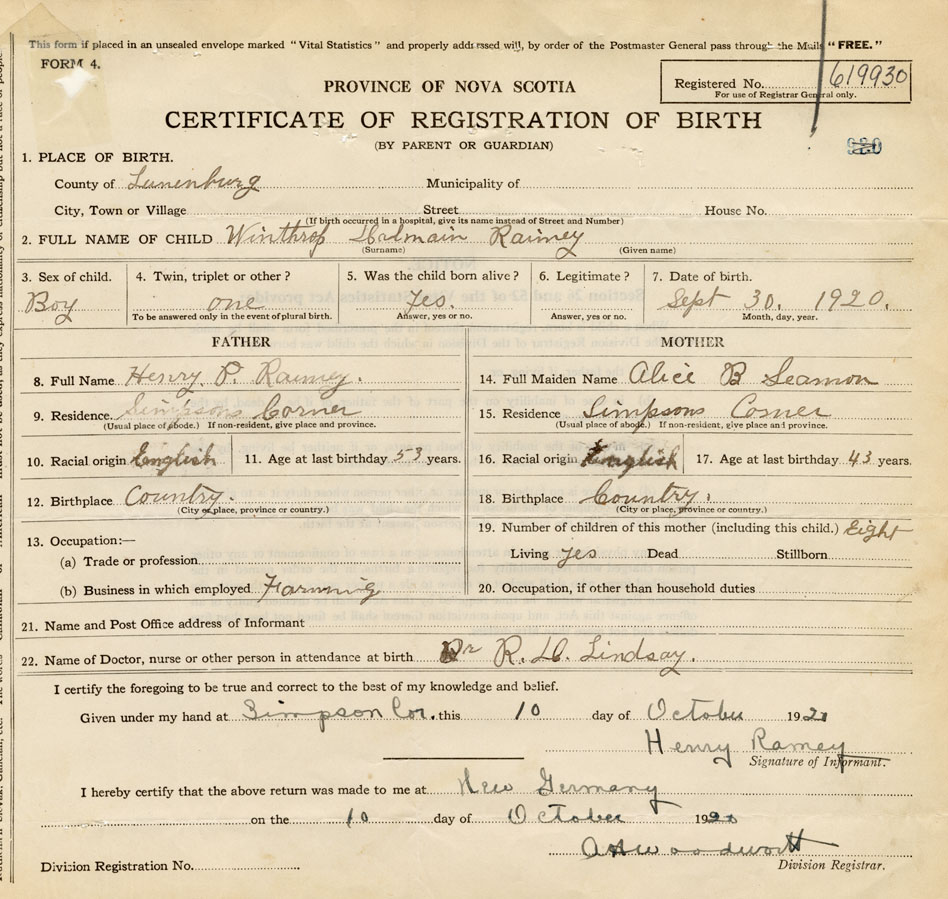 This form if placed in an unsealed envelope marked "Vital Statistics" and properly addressed will, by order of the Postmaster General pass through the Mails "FREE."
FORM 4.
Registered No. 619930
For use of Registrar General only.
PROVINCE OF NOVA SCOTIA
CERTIFICATE OF REGISTRATION OF BIRTH
(BY PARENT OR GUARDIAN)
920
1. PLACE OF BIRTH.
County of Lunenburg Municipality of
City, Town or Village Street House No.
(If birth occurred in a hospital, give its name instead of Street and Number)
2. FULL NAME OF CHILD Winthrop Raimey
(Surname) (Given name)
3. Sex of child. 4. Twin, triplet or other? 5. Was the child born alive? 6. Legitimate? 7. Date of birth.
Boy one Yes. Sept 30. 1920.
To be answered only in the event of plural birth. Answer, yes or no. Answer, yes or no. Month, day, year.
FATHER MOTHER
8. Full Name Henry P. Raimey. 14. Full Maiden Name Alice B Seamon
9. Residence. Simpsons Corner 15. Residence Simpsons Corner
(Usual place of abode.) If non-resident, give place and province. (Usual place of abode.) If non-resident, give place and province.
10. Racial origin English 11. Age at last birthday 53 years. 16. Racial origin English 17. Age at last birthday 43 years.
12. Birthplace Country. 18. Birthplace Country.
(City or place, province or country.) (City or place, province or country.)
13. Occupation:— 19. Number of children of this mother (including this child.) Eight
(a) Trade or profession. Living yes Dead Stillborn
(b) Business in which employed Farming 20. Occupation, if other than household duties
21. Name and Post Office address of Informant
22. Name of Doctor, nurse or other person in attendance at birth Dr R. Lindsay.
I certify the foregoing to be true and correct to the best of my knowledge and belief.
Given under my hand at Simpson Cor. this 10 day of October 1920
Henry Ramey
Signature of Informant.
I hereby certify that the above return was made to me at New Germany
on the 10 day of October 1920
Division Registration No. Division Registrar.